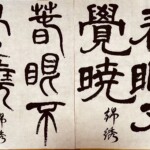 春眠不
覺曉
錦綉
春眠不
覺曉
錦綉